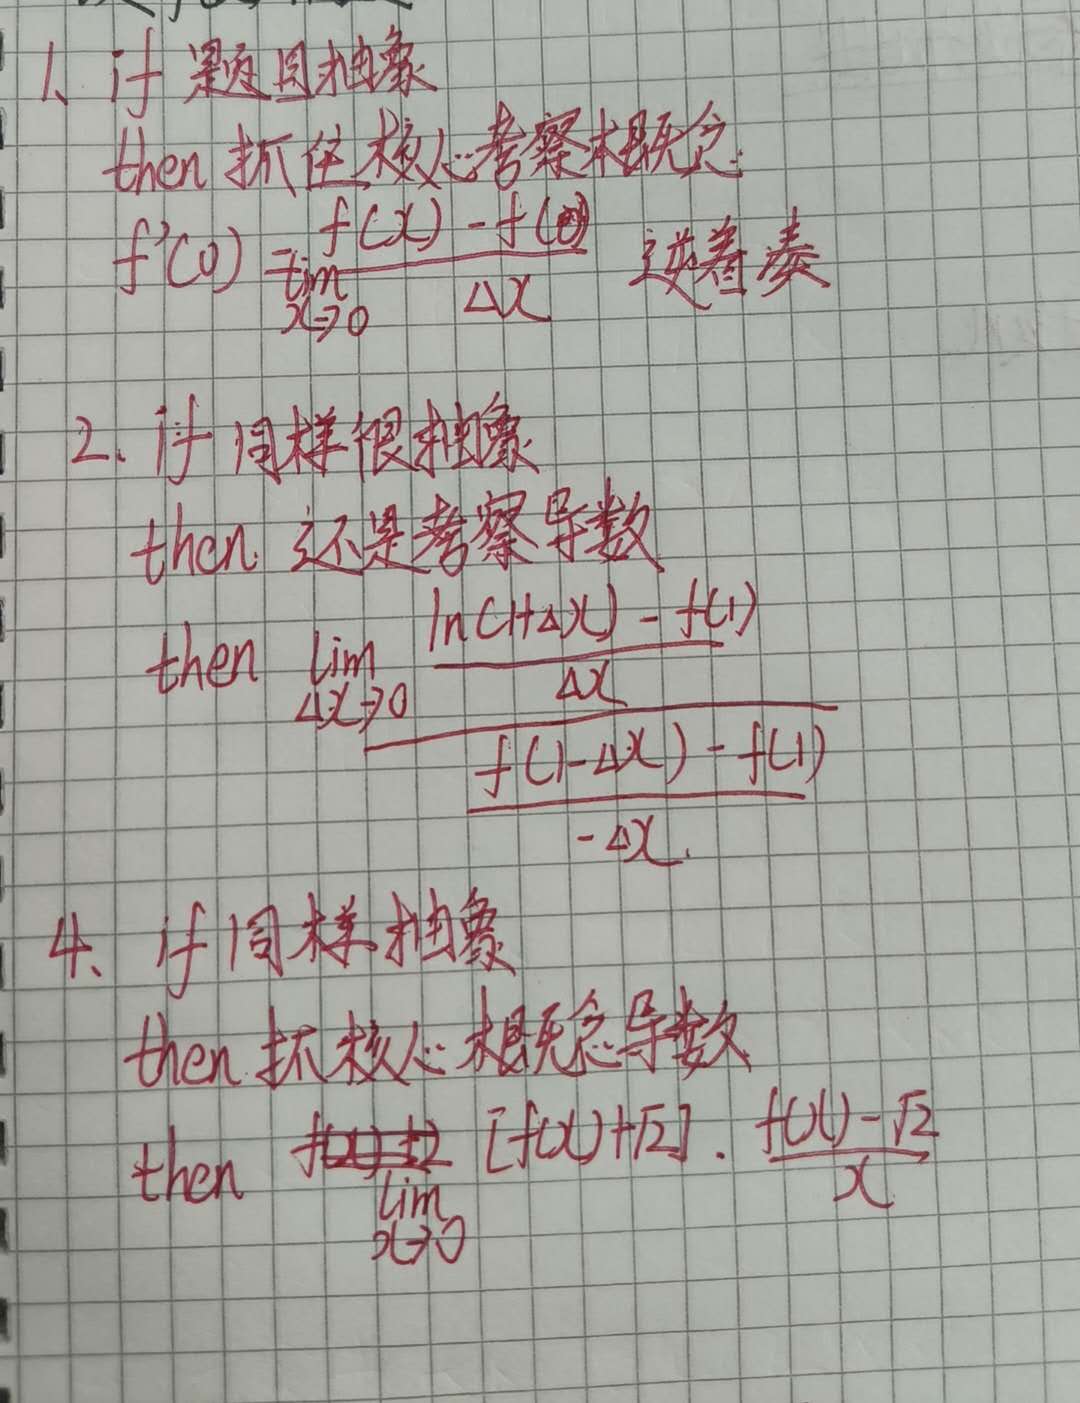 1、if 题目抽象
then 抓住核心考察概念
f'(0) = lim x→0 f(x) - f(0) / Δx 逆着凑
2、if 同样很抽象
then 还是考察导数
then lim Δx→0 ln(1+Δx) - f(1) / Δx
f(1-Δx) - f(1) / -Δx
4、if 同样抽象
then 抓核心概念导数
then lim x→0 [f(x)+√2] · f(x)-√2 / x